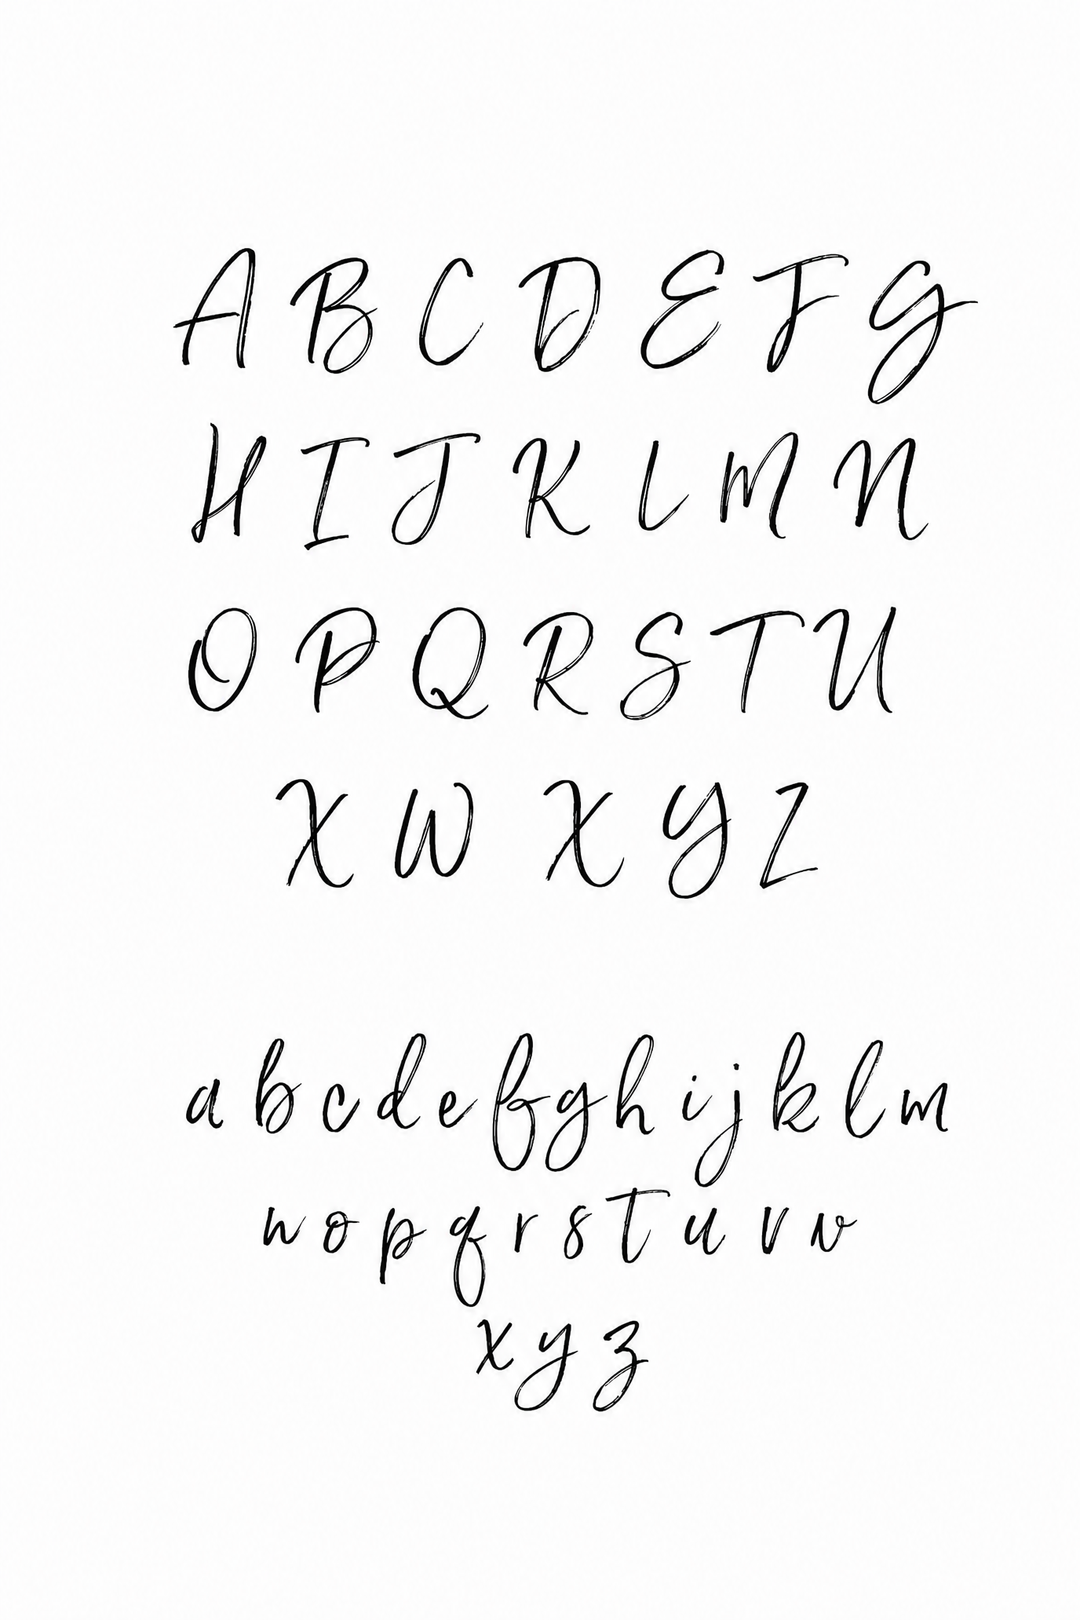 A B C D E F G
H I J K L M N
O P Q R S T U
X W X Y Z
a b c d e f g h i j k l m
n o p q r s t u v w
x y z